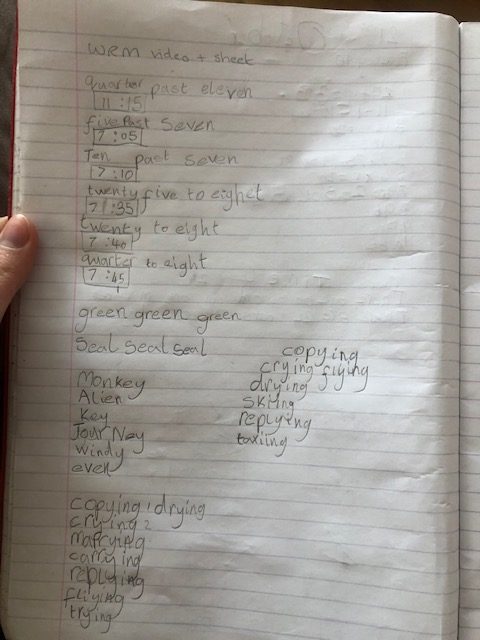 WRM video + sheet
quarter past eleven
11:15
five Past Seven
7:05
Ten past seven
7:10
twenty five to eighet
7:35
twenty to eight
7:40
quarter to eight
7:45
green green green
Seal Seal Seal
Monkey
Alien
key
Jour Ney
windy
even
copying
crying flying
drying
Skiing
replying
taxiing
copying 1 drying
crying 2
marrying
carrying
replying
fliying
trying